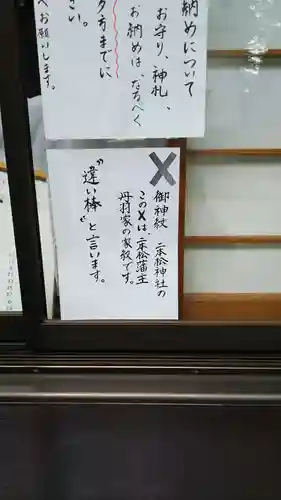 納めについて
お守り、神札、
お納めは、なるべく
夕方までに
さい。
へお願いします。
御神紋 二本松神社の
この✕は、二本松藩主
丹羽家の家紋です。
〝違い棒〟と言います。